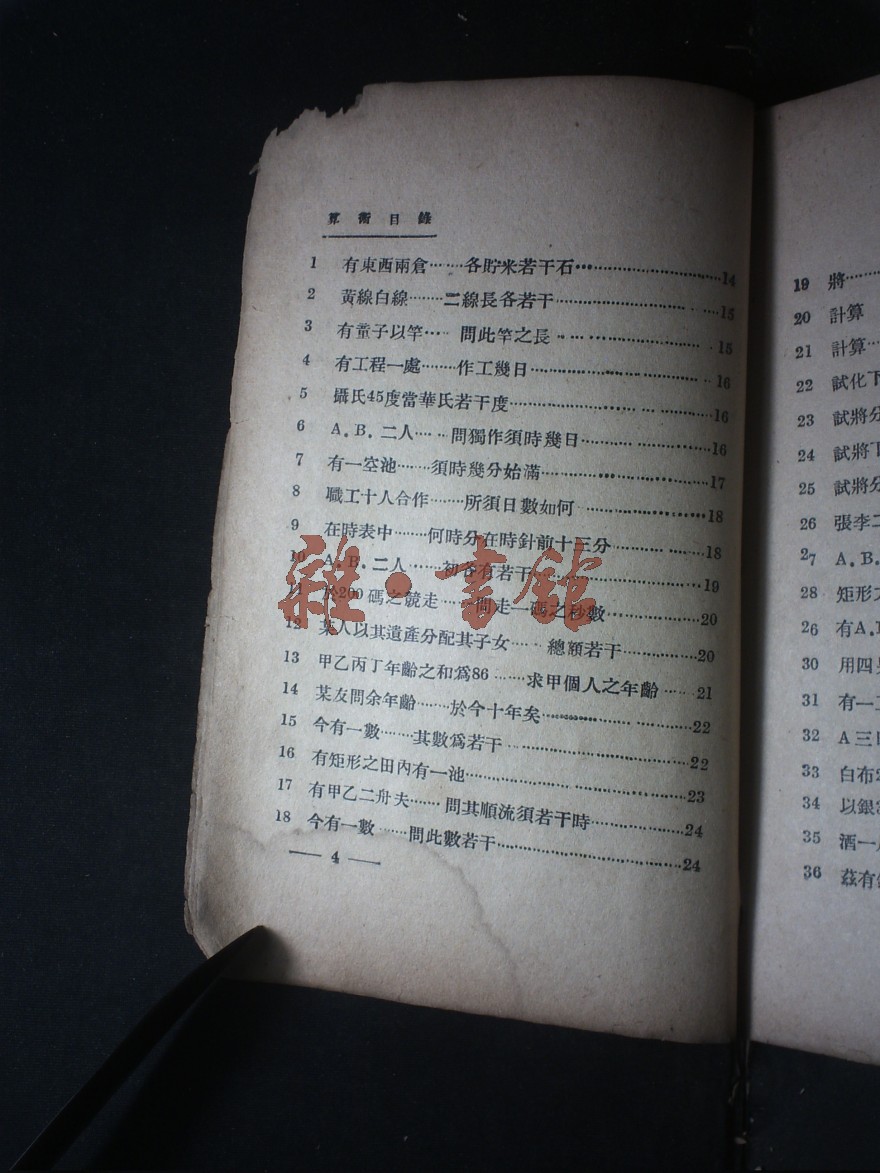 算術目錄
1 有東西兩倉……各貯米若干石……14
2 黃線白線……二線長各若干……15
3 有童子以竿……問此竿之長……15
4 有工程一處……作工幾日……16
5 攝氏45度當華氏若干度……16
6 A.B.二人……問獨作須時幾日……16
7 有一空池……須時幾分始滿……17
8 職工十人合作……所須日數如何……18
9 在時表中……何時分在時針前十三分……18
10 A.B.二人……初各有若干……19
11 於200碼之競走……問走一碼之秒數……20
12 某人以其遺產分配其子女……總額若干……20
13 甲乙丙丁年齡之和爲86……求甲個人之年齡……21
14 某友問余年齡……於今十年矣……22
15 今有一數……其數爲若干……22
16 有矩形之田內有一池……23
17 有甲乙二舟夫……問其順流須若干時……24
18 今有一數……問此數若干……24
— 4 —
雜·書館
19 將……
20 計算
21 計算……
22 試化下
23 試將分
24 試將下
25 試將分
26 張李二
27 A.B.
28 矩形之
26 有A.
30 用四
31 有一
32 A三
33 白布
34 以銀
35 酒一
36 茲有